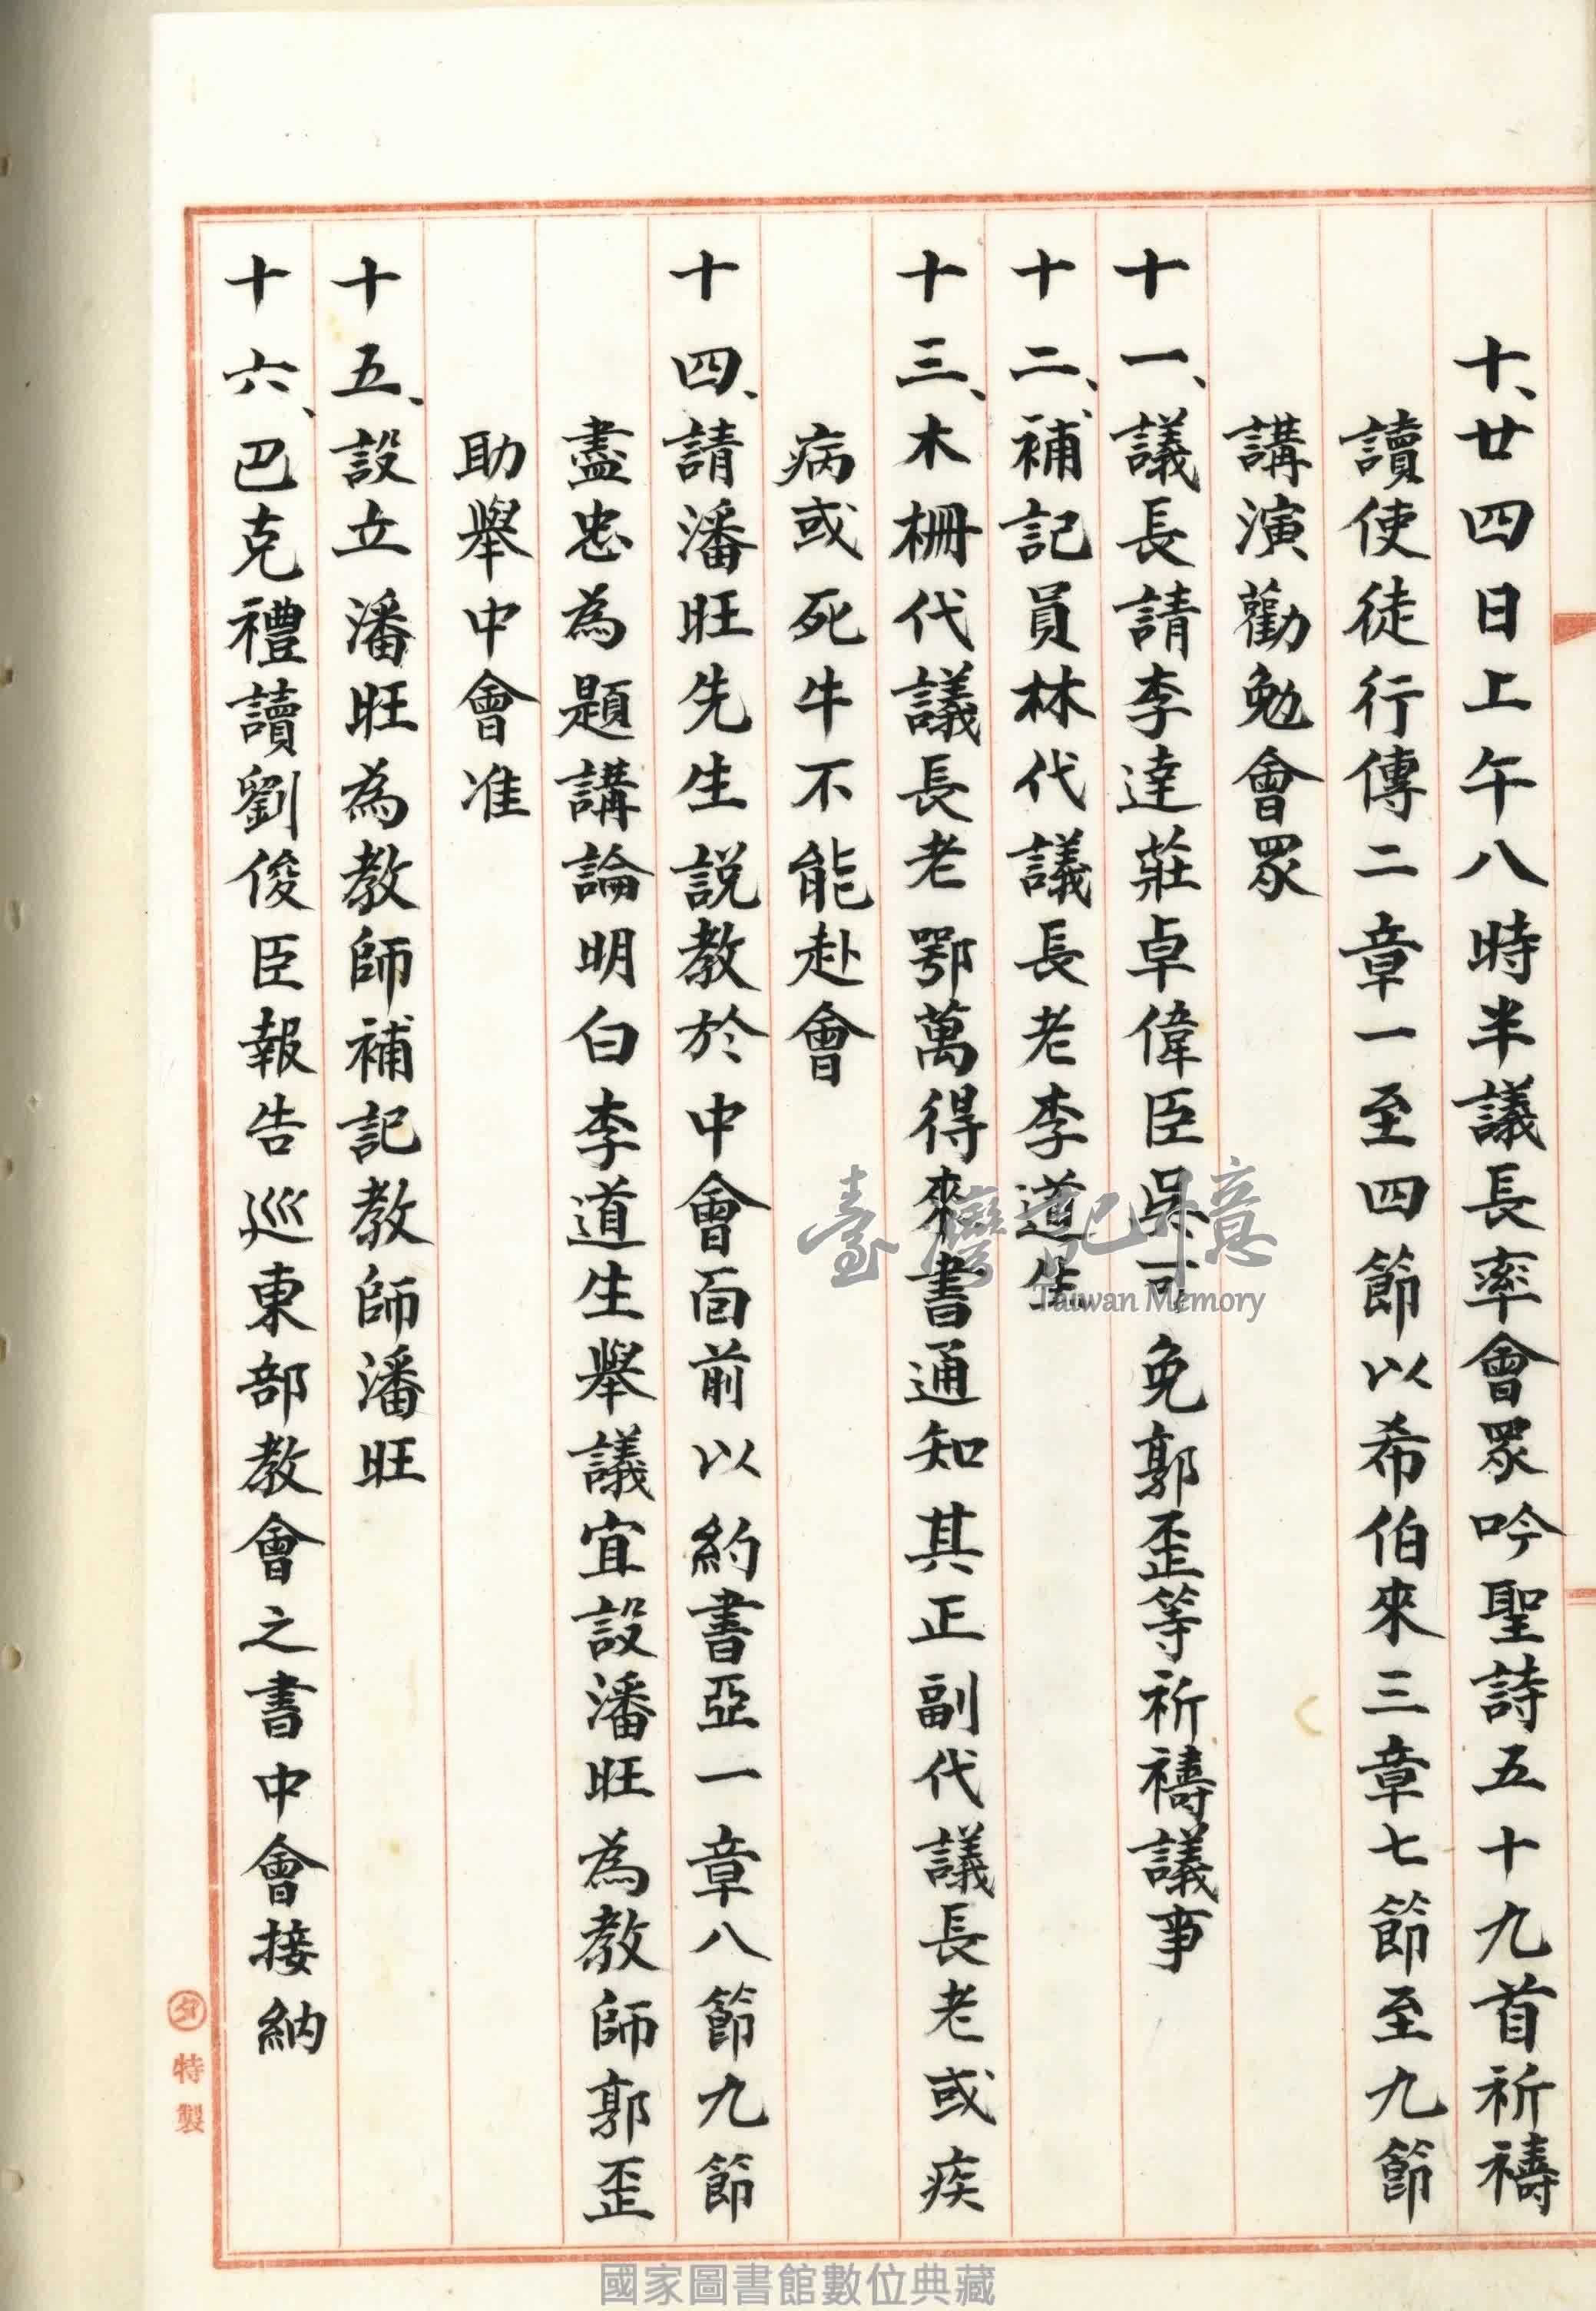 十、廿四日上午八時半議長率會眾吟聖詩五十九首祈禱
讀使徒行傳二章一至四節以希伯來三章七節至九節
講演勸勉會眾
十一、議長請李達莊卓偉臣吳可免郭歪等祈禱議事
十二、補記員林代議長老李道生
十三、木柵代議長老鄂萬得來書通知其正副代議長老或疾
病或死牛不能赴會
十四、請潘旺先生説教於中會面前以約書亞一章八節九節
盡忠為題講論明白李道生舉議宜設潘旺為教師郭歪
助舉中會准
十五、設立潘旺為教師補記教師潘旺
十六、巴克禮讀劉俊臣報告巡東部教會之書中會接納
特製
臺灣記憶
Taiwan Memory
國家圖書館數位典藏